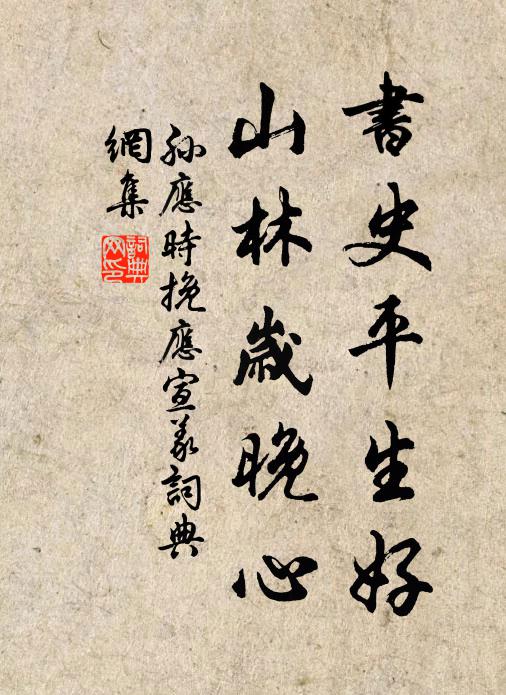 書史平生好
山林歲晚心
孫應時挽應宣義詞典
網集
詞典
网印